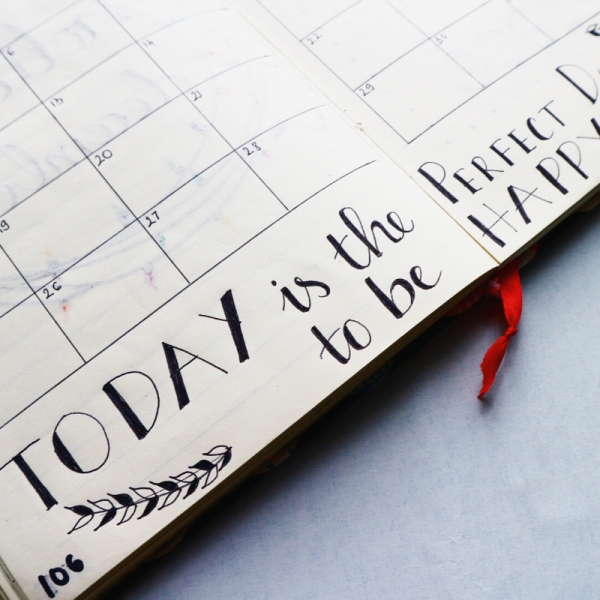 6
13 14
19 20 21
26 27 28
TODAY is the
to be
106
22
29 30
PERFECT
HAPPY